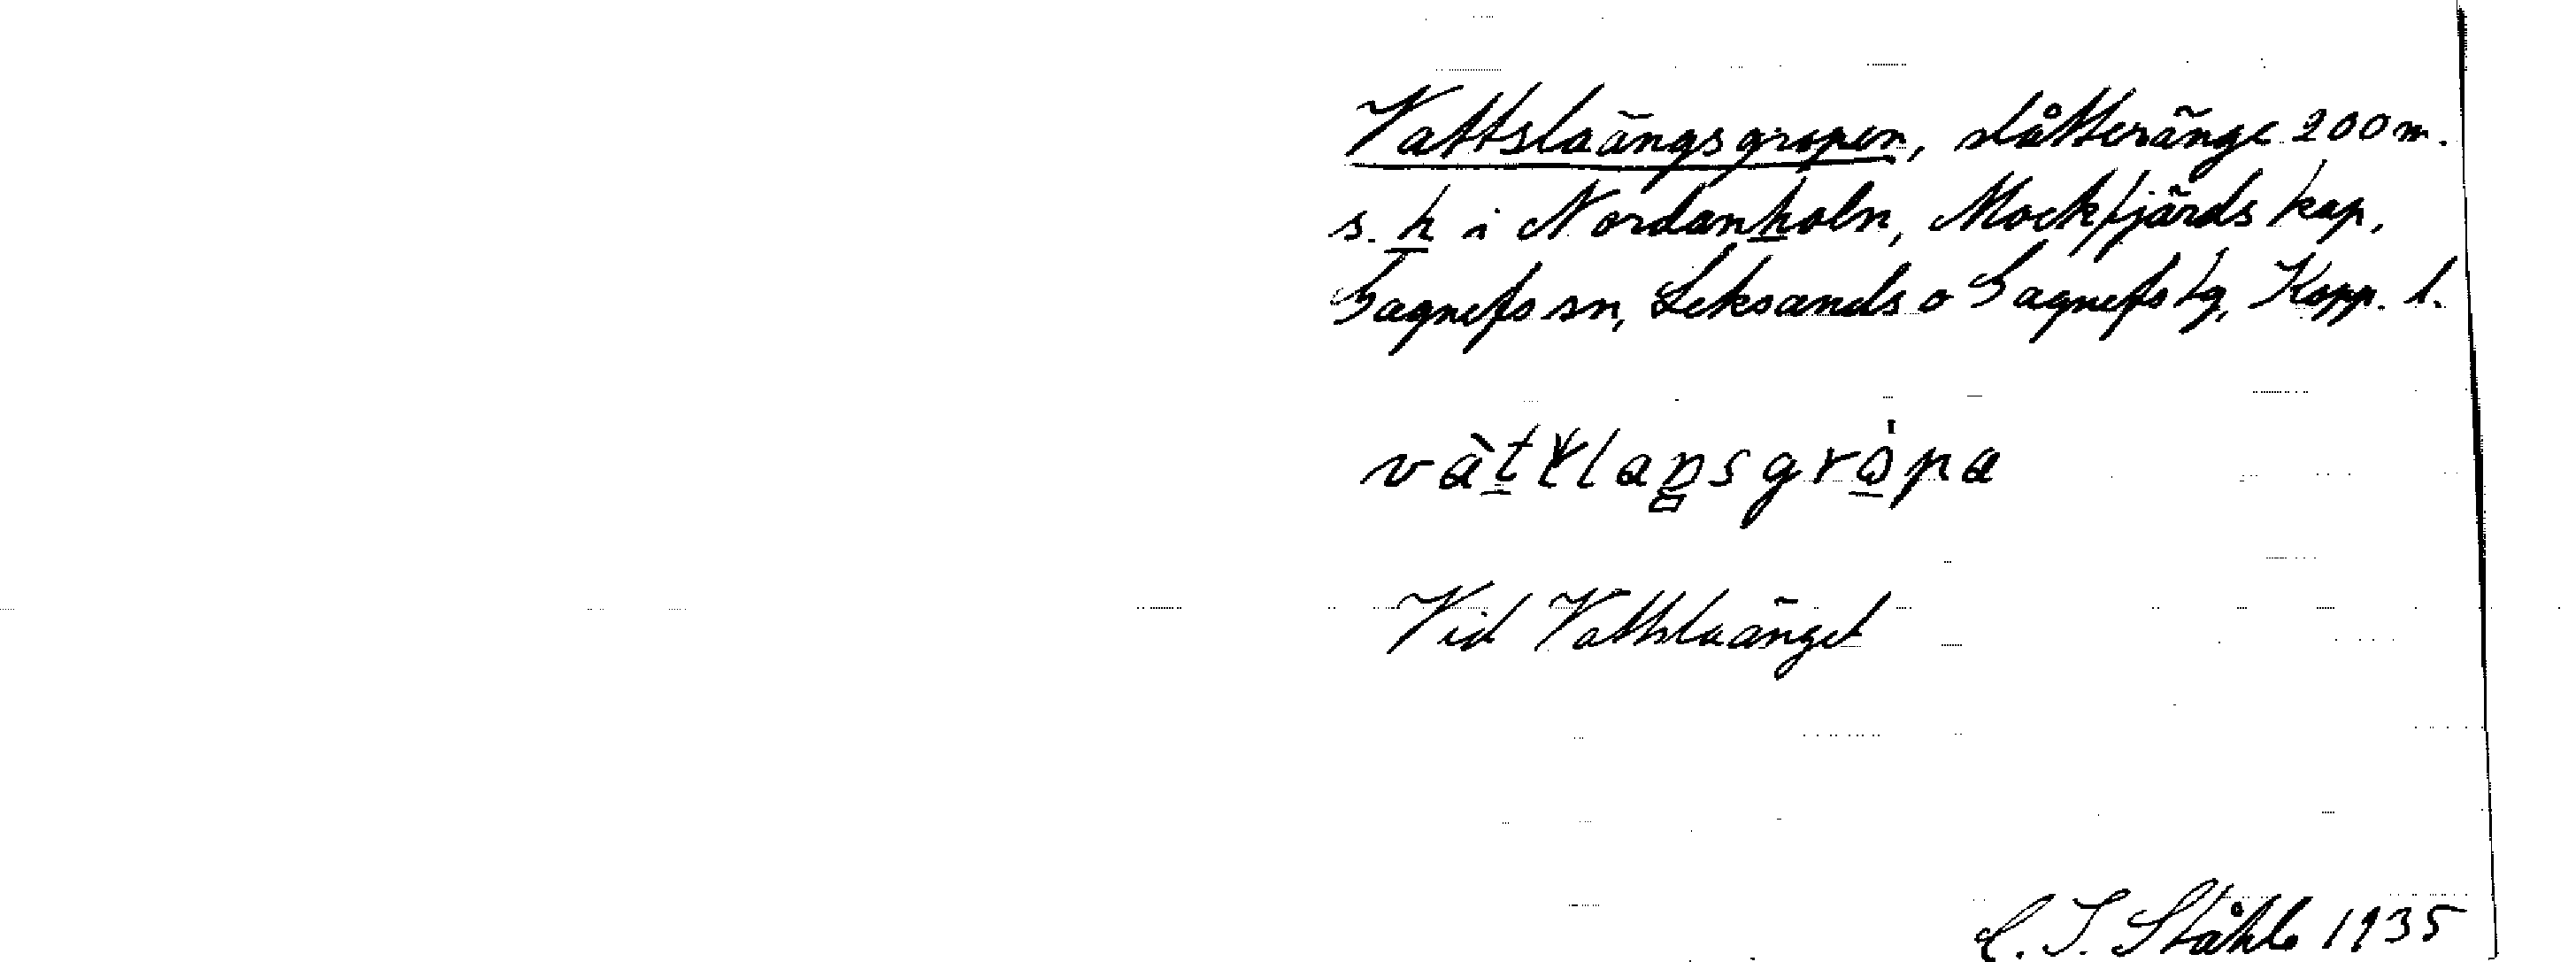 Vattslaängsgropen, slåtteränge 200 m.
s. h i Nordanholn, Mockfjärds kap,
Gagnefs sn, Leksands o Gagnefs tg, Kopp. l.
Vid Vattslaänget
C. I. Ståhle 1935